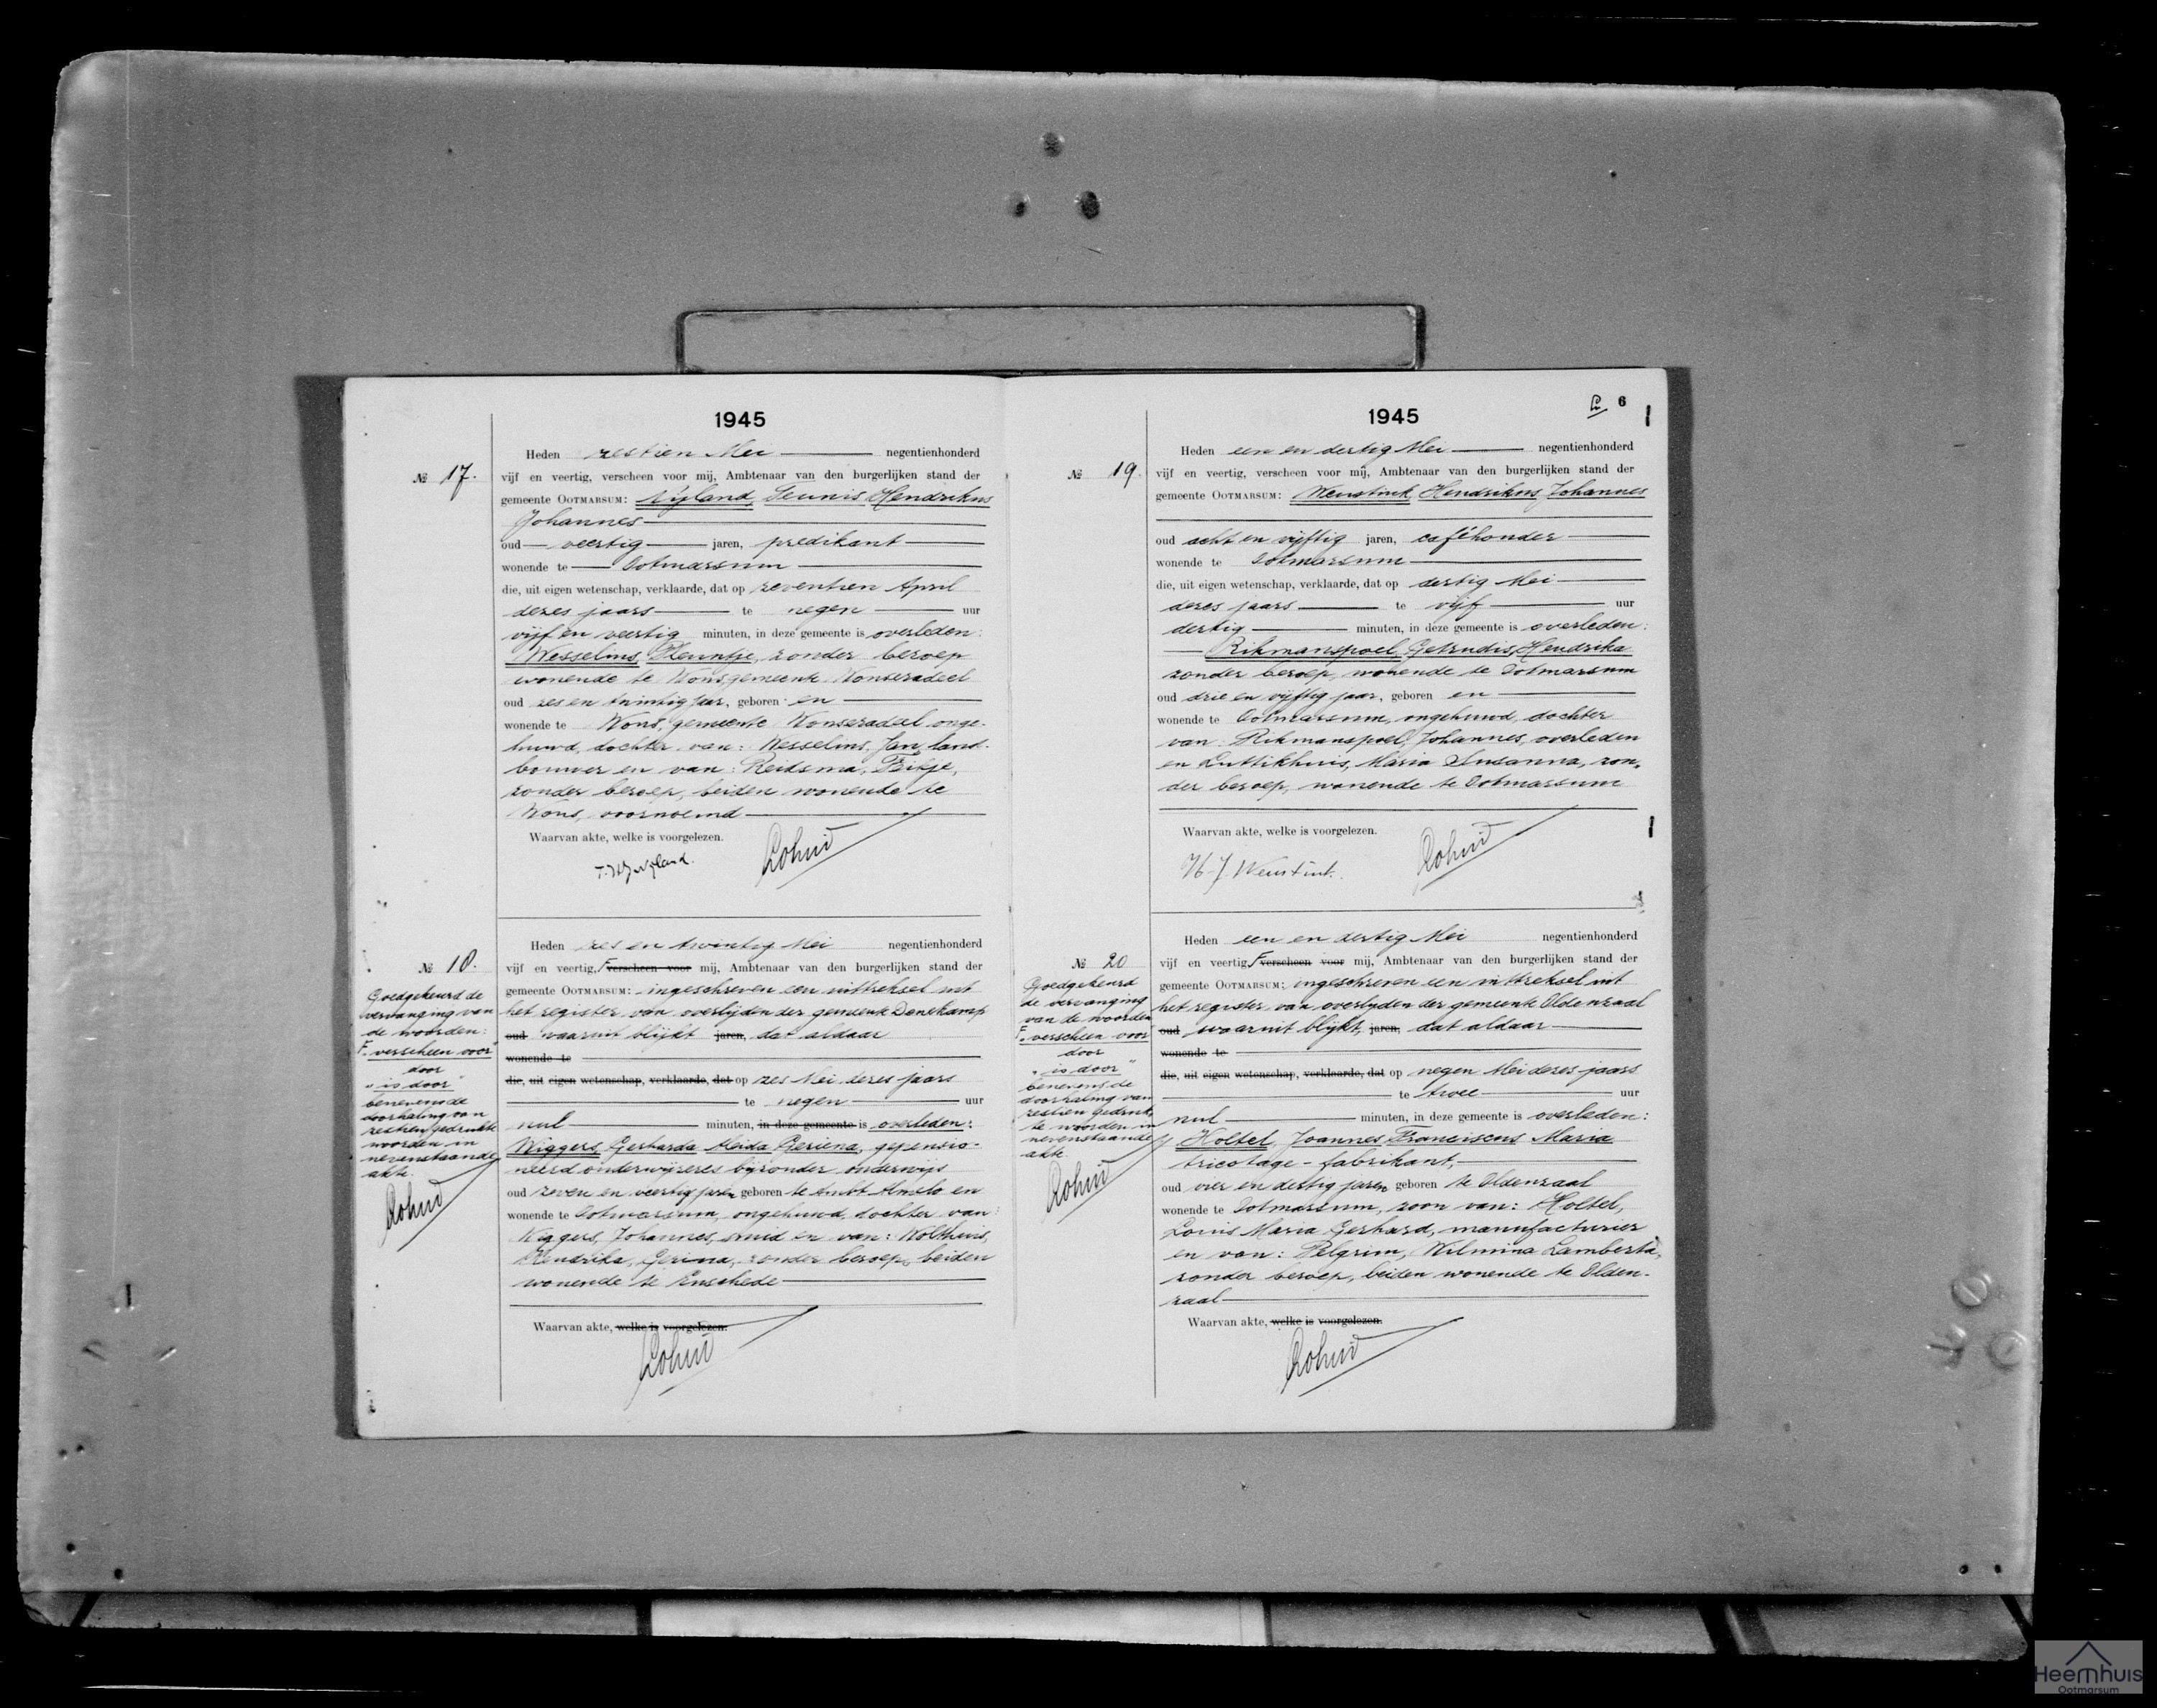 1945
Heden zestien Mei negentienhonderd
№ 17. vijf en veertig, verscheen voor mij, Ambtenaar van den burgerlijken stand der
gemeente OOTMARSUM: Nijland, Teunis Hendrikus
Johannes
oud veertig jaren, predikant
wonende te Ootmarsum
die, uit eigen wetenschap, verklaarde, dat op zeventien April
dezes jaars te negen uur
vijf en veertig minuten, in deze gemeente is overleden:
Wesselius, Pleuntje, zonder beroep
wonende te Wons, gemeente Wonseradeel
oud zes en twintig jaar, geboren en
wonende te Wons, gemeente Wonseradeel onge-
huwd, dochter van: Wesselius, Jan, land-
bouwer en van: Reidsma, Eikje,
zonder beroep, beiden wonende te
Wons, voornoemd
Waarvan akte, welke is voorgelezen.
T.H.J. Nijland.
Heden zes en twintig Mei negentienhonderd
№ 18. vijf en veertig, F verscheen voor mij, Ambtenaar van den burgerlijken stand der
gemeente OOTMARSUM: ingeschreven een uittreksel uit
het register van overlijden der gemeente Denekamp
oud waaruit blijkt jaren, dat aldaar
wonende te
die, uit eigen wetenschap, verklaarde, dat op zes Mei dezes jaars
te negen uur
nul minuten, in deze gemeente is overleden:
Wiggers, Gerharda Aleida Geriena, gepensio-
neerd onderwijzeres bijzonder onderwijs
oud zeven en veertig jaren geboren te Ambt Almelo en
wonende te Ootmarsum, ongehuwd, dochter van:
Wiggers, Johannes, smid en van: Wolthuis,
Hendrika, Gerina, zonder beroep, beiden
wonende te Enschede
Waarvan akte, welke is voorgelezen.
Goedgekeurd de
vervanging van
de woorden:
F „verscheen voor"
door
„is door"
benevens de
doorhaling van
zestien gedrukte
woorden in
nevenstaande
akte.
1945
6
Heden een en dertig Mei negentienhonderd
№ 19. vijf en veertig, verscheen voor mij, Ambtenaar van den burgerlijken stand der
gemeente OOTMARSUM: Weustink, Hendrikus Johannes
oud acht en vijftig jaren, caféhouder
wonende te Ootmarsum
die, uit eigen wetenschap, verklaarde, dat op dertig Mei
dezes jaars te vijf uur
dertig minuten, in deze gemeente is overleden:
Rikmanspoel, Getrudis, Hendrika
zonder beroep, wonende te Ootmarsum
oud drie en vijftig jaar, geboren en
wonende te Ootmarsum, ongehuwd, dochter
van: Rikmanspoel, Johannes, overleden
en Luttikhuis, Maria Susanna, zon-
der beroep, wonende te Ootmarsum
Waarvan akte, welke is voorgelezen.
H. J. Weustink.
Heden een en dertig Mei negentienhonderd
№ 20 vijf en veertig, F verscheen voor mij, Ambtenaar van den burgerlijken stand der
gemeente OOTMARSUM: ingeschreven een uittreksel uit
het register van overlijden der gemeente Oldenzaal
oud waaruit blijkt, jaren, dat aldaar
wonende te
die, uit eigen wetenschap, verklaarde, dat op negen Mei dezes jaars
te twee uur
nul minuten, in deze gemeente is overleden:
Holtel, Joannes, Franciscus Maria
tricotage-fabrikant,
oud vier en dertig jaren geboren te Oldenzaal
wonende te Ootmarsum, zoon van: Holtel,
Louis Maria Gerhard, manufacturier
en van: Pelgrim, Wilmina Lamberta,
zonder beroep, beiden wonende te Olden-
zaal
Waarvan akte, welke is voorgelezen.
Goedgekeurd
de vervanging
van de woorden
F „verscheen voor"
door
„is door"
benevens de
doorhaling van
zestien gedruk-
te woorden in
nevenstaande
akte.
Heemhuis
Ootmarsum